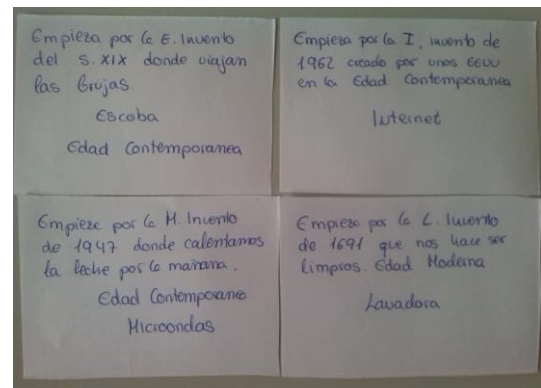 Empieza por la E. Invento
del S. XIX donde viajan
las brujas.
Escoba
Edad Contemporanea
Empieza por la I, invento de
1962 creado por unos EEUU
en la Edad Contemporanea
Internet
Empieza por la M. Invento
de 1947 donde calentamos
la leche por la mañana.
Edad Contemporanea
Microondas
Empieza por la L. Invento
de 1691 que nos hace ser
limpios. Edad Moderna
Lavadora